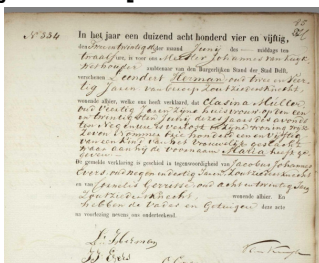 Nº 334
In het jaar een duizend acht honderd vier en vijftig,
den Twee en twintigste der maand Junij des middags ten
twaalf ure, is voor ons Meester Johannes van Kuyk
Wethouder ambtenaar van den Burgerlijken Stand der Stad Delft,
verschenen Leendert Herman oud twee en veer
tig Jaren van beroep Zoutziedersknecht
wonende alhier, welke ons heeft verklaard, dat Clasina Mullen
oud veertig Jaren zijne huisvrouw op den een
en twintigsten Junij dezes jaars des avonds
ten negen ure is verlost ten zijne woning wijk
zeven nommer vijf honderd een en vijftig
van een kind van het vrouwelijk geslacht
waar aan hij de voornaam Maria heeft ge
geven
De gemelde verklaring is geschied in tegenwoordigheid van Jacobus Johannes
Evers oud negen en dertig Jaren Zoutziedersknecht
en van Cornelis Gerresse oud acht en twintig Jaren
Zoutziedersknecht wonende alhier. En
hebben de Vader en Getuigen deze acte
na voorlezing nevens ons onderteekend.
L: Herman
Evers